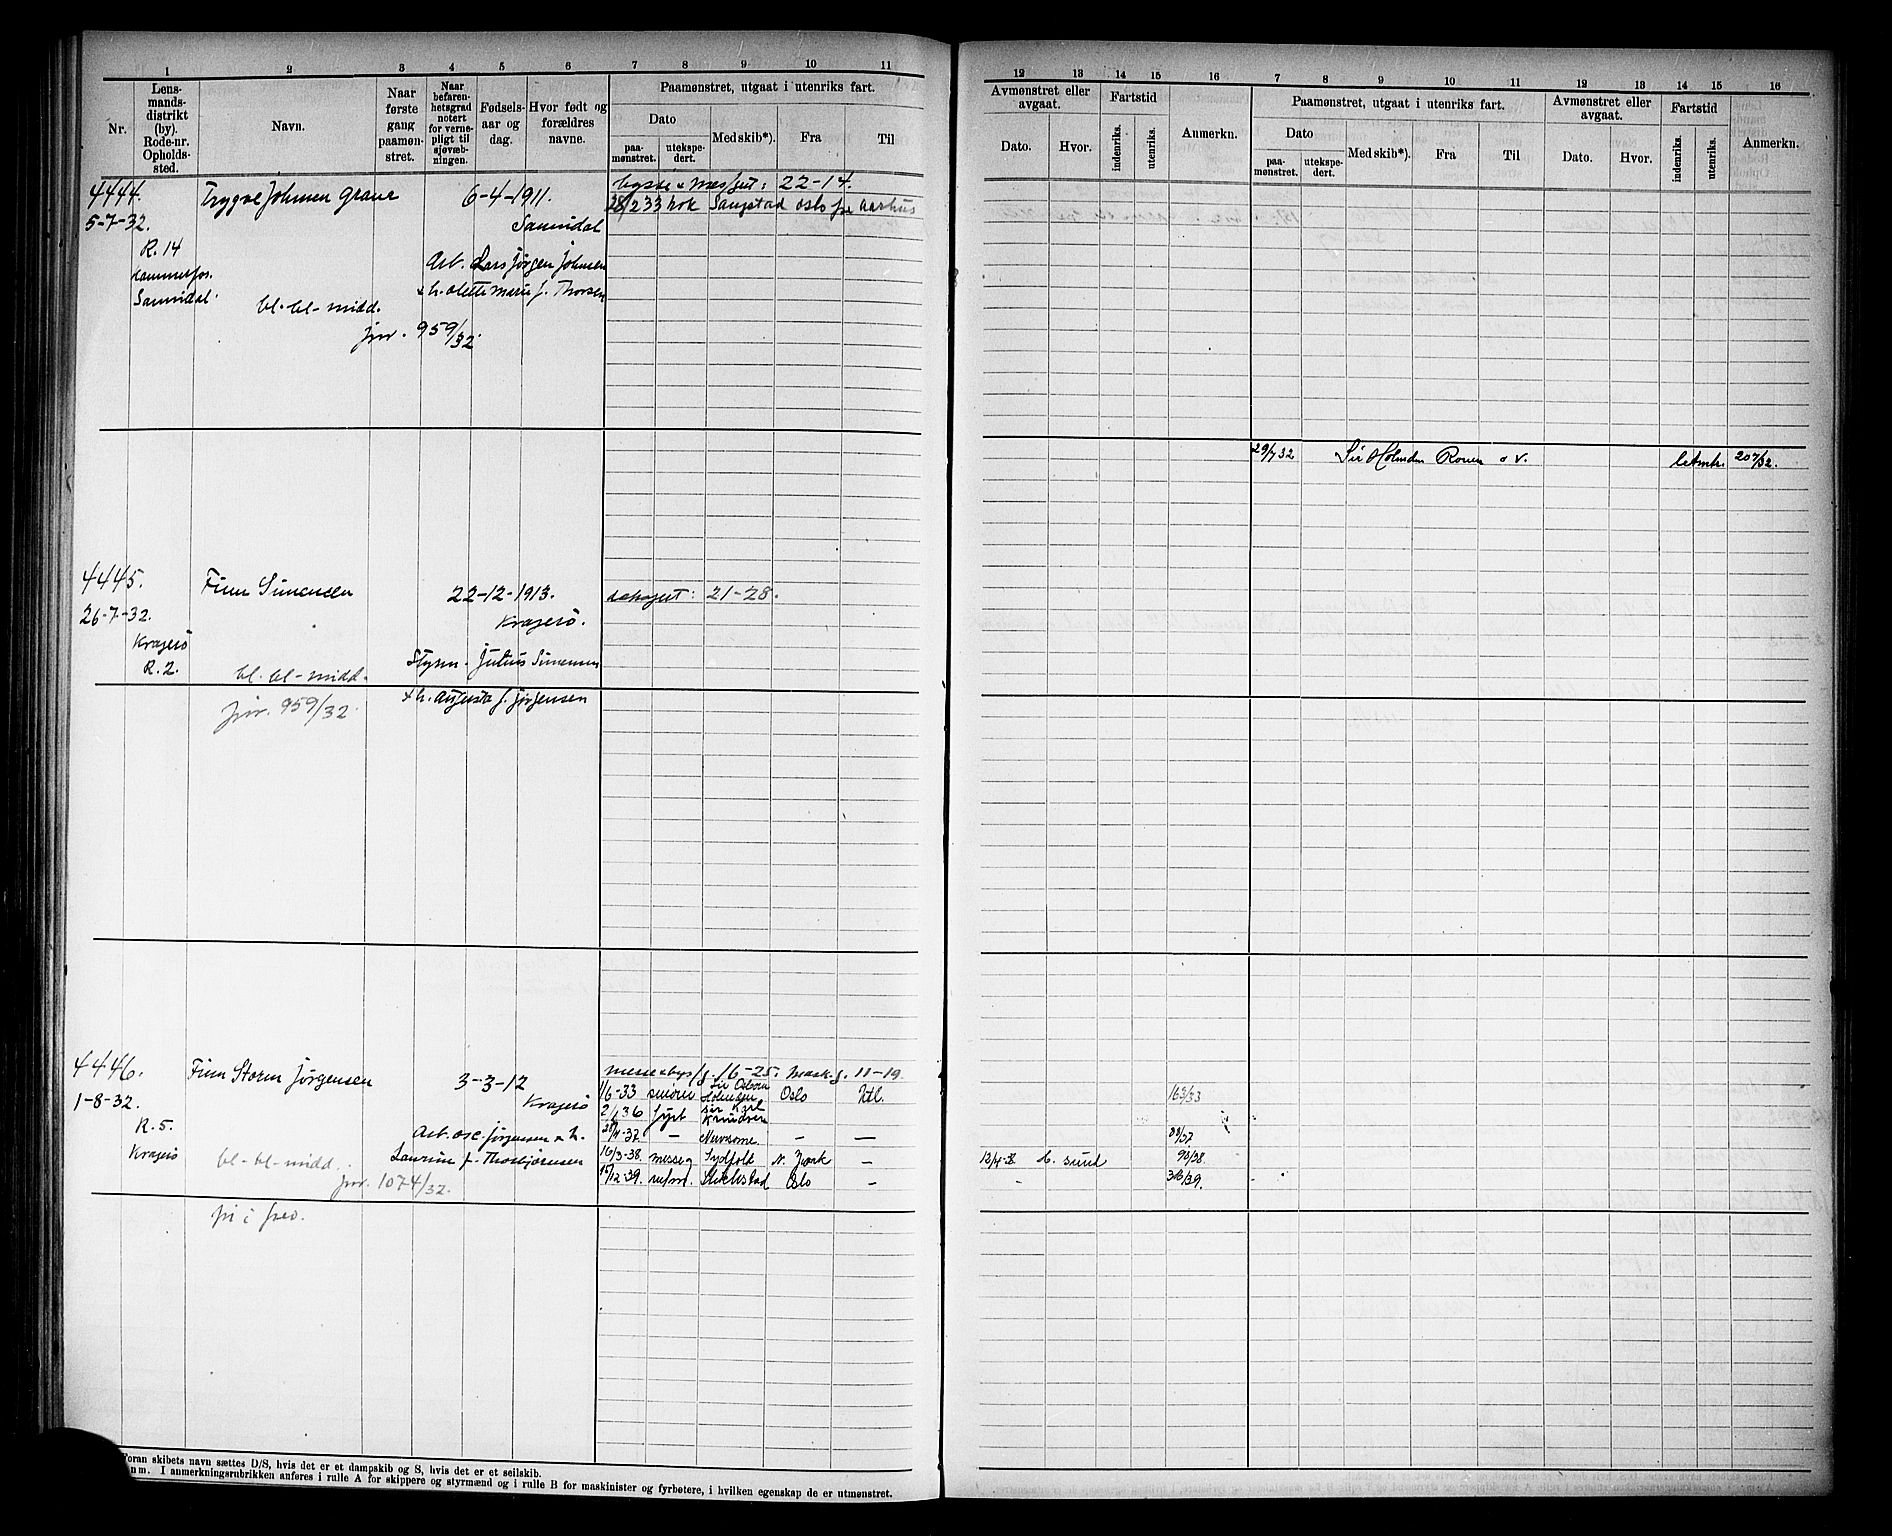 1 2 3 4 5 6 7 8 9 10 11
Nr.
Lens-
mands-
distrikt
(by).
Rode-nr.
Opholds-
sted.
Navn.
Naar
første
gang
paamøn-
stret.
Naar
befaren-
hetsgrad
notert
for verne-
pligt til
sjøvæb-
ningen.
Fødsels-
aar og
dag.
Hvor født og
forældres
navne.
Paamønstret, utgaat i utenriks fart.
Dato
paa-
mønstret.
utekspe-
dert.
Med skib*).
Fra
Til
4444.
5-7-32.
R. 14
Sannidal.
Trygve Johnsen Grane
bl.-bl-midd.
jnr. 959/32.
6-4-1911.
Sannidal
Arb. Lars Jørgen Johnsen
+ h. Olette Marie f. Thorsen
22-14.
28/2 33 kok Saugstad Oslo for Aarhus
4445.
26-7-32.
Kragerö
R. 2.
Finn Simensen
bl.-bl-midd.
jnr. 959/32.
22-12-1913.
Kragerö.
Styrm. Julius Simensen
+ h. Augusta f. Jørgensen
21-28.
4446.
1-8-32.
R. 5.
Kragerö
Finn Storm Jørgensen
bl-bl-midd.
jnr. 1074/32.
3-3-12
Kragerö
Arb. Osc. Jørgensen + h.
Laurine f. Thorbjørnsen
16-25. Mask. g. 11-19.
1/6-33 smörer Sir Osborn Holmden Oslo Utl.
fyrb Sir Karl Knudsen
— — —
16/3-38. messeg Sydfold N. York —
15/12-39. Stiklestad Oslo —
Foran skibets navn sættes D/S, hvis det er et dampskib og S, hvis det er et seilskib.
nm. I anmerkningsrubrikken anføres i rulle A for skippere og styrmænd og i rulle B for maskinister og fyrbøtere, i hvilken egenskap de er utmønstret.
12 13 14 15 16 7 8 9 10 11 12 13 14 15 16
Avmønstret eller
avgaat.
Dato.
Hvor.
Fartstid
indenriks.
utenriks.
Anmerkn.
Paamønstret, utgaat i utenriks fart.
Dato
paa-
mønstret.
utekspe-
dert.
Med skib*).
Fra
Til
Avmønstret eller
avgaat.
Dato.
Hvor.
Fartstid
indenriks.
utenriks.
Anmerkn.
29/7 32 Sir Holmden Rouen o. v. 207/32.
163/33
88/37.
sund 93/38.
313/39.